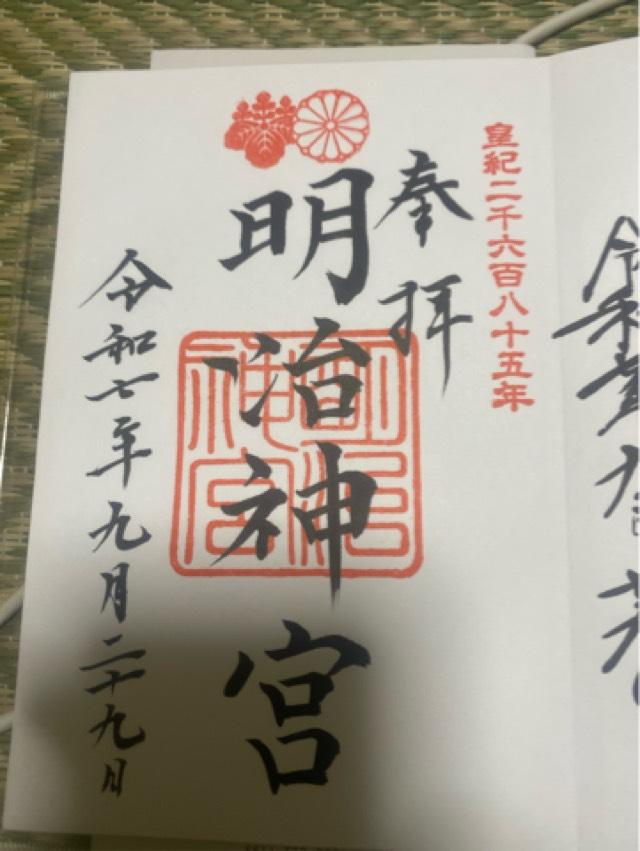 皇紀二千六百八十五年
奉拝
明治神宮
明治神宮
令和七年九月二十九日